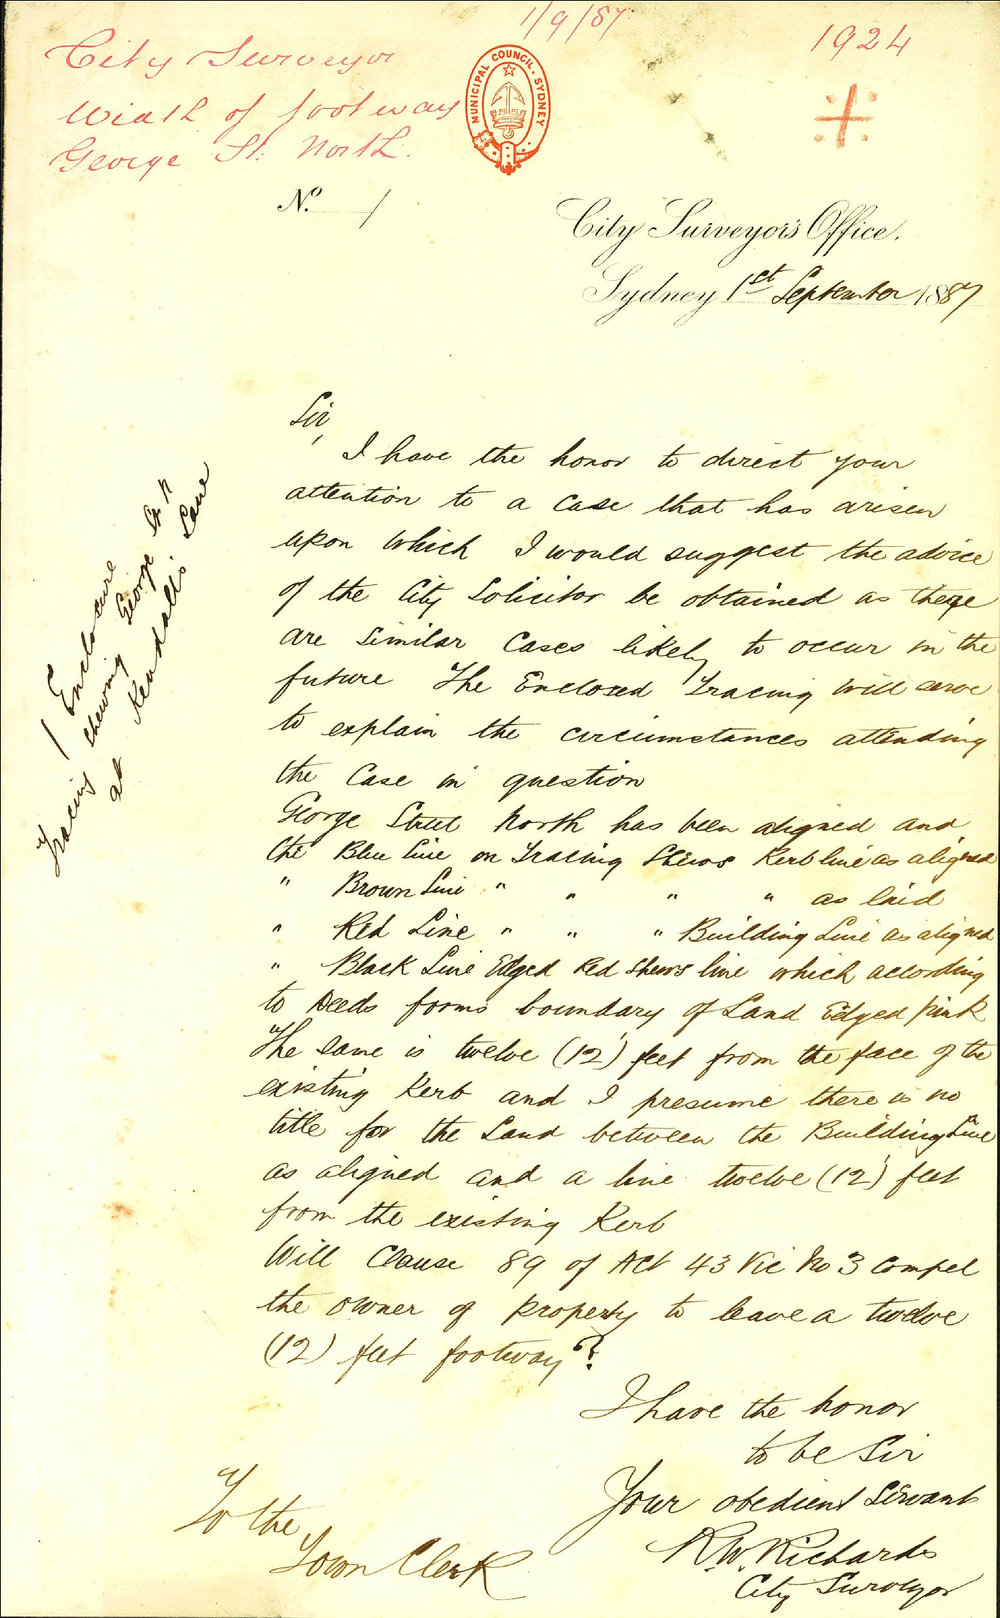 1/9/87
1924
City Surveyor
Width of footway
George St. North.
MUNICIPAL COUNCIL. SYDNEY
No. 1
City Surveyor's Office.
Sydney 1st September 1887
Sir,
I have the honor to direct your
attention to a case that has arisen
upon which I would suggest the advice
of the City Solicitor be obtained as there
are similar cases likely to occur in the
future The Enclosed Tracing will serve
to explain the circumstances attending
the case in question
George Street North has been aligned and
the Blue line on Tracing Shews Kerb line as aligned
" Brown Line " " " " as laid
" Red Line " " " Building Line as aligned
" Black Line Edged red shews line which according
to Deeds forms boundary of Land Edged pink
The same is twelve (12') feet from the face of the
existing Kerb and I presume there is no
title for the Land between the Building Line
as aligned and a line twelve (12') feet
from the existing Kerb
Will Clause 89 of Act 43 Vic No 3 compel
the owner of property to leave a twelve
(12) feet footway?
I have the honor
to be Sir
Your obedient Servant
R.W. Richards
City Surveyor
To the
Town Clerk
1 Enclosure
Tracing shewing George St N
at Kendall's Lane